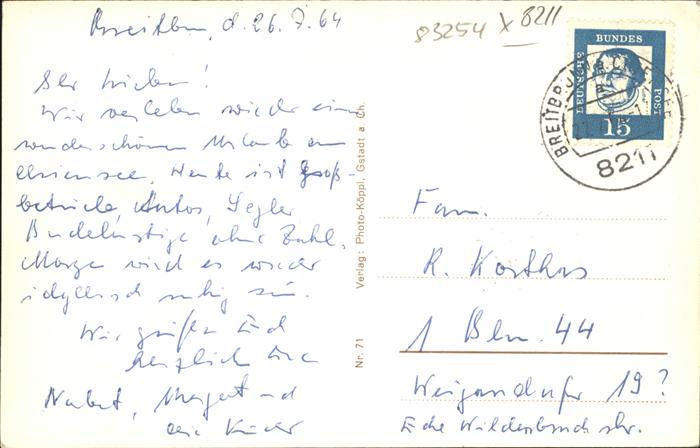 Breitbr., d. 26.7.64
83254 x 8211
Ihr Lieben!
Wir verleben wieder einen
wunderschönen Urlaub am
Chiemsee. Heute ist Groß-
betrieb, Autos, Segler,
Badelustige ohne Zahl.
Morgen wird es wieder
idyllisch ruhig sein.
Wir grüßen Euch
herzlich Eure
Norbert, Margret und
die Kinder
Nr. 71 Verlag: Photo-Köppl, Gstadt a. Ch.
DEUTSCHE BUNDESPOST
15
BREITBRUNN
8211
Fam.
R. Korthas
1 Bln. 44
19?
Ecke Wildenbruchstr.